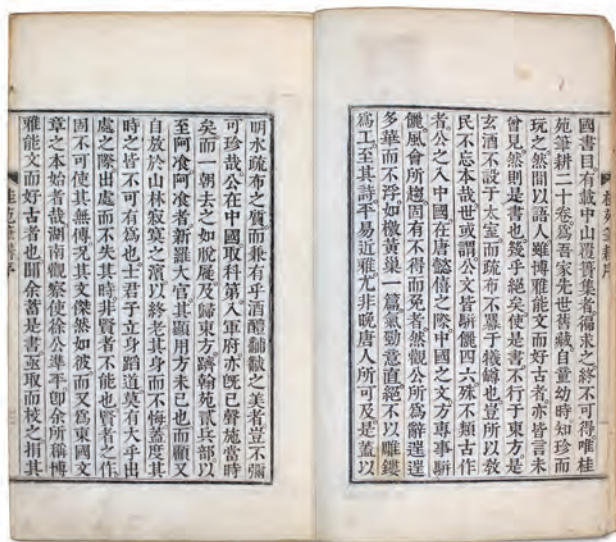 國書目有載中山覆簣集者徧求之終不可得唯桂
苑筆耕二十卷爲吾家先世舊藏自童幼時知珍而
玩之然間以語人雖博雅能文而好古者亦皆言未
曾見然則是書也幾乎絕矣使是書不行于東方是
玄酒不設于太室而疏布不冪于犧罇也豈所以敎
民不忘本哉世或謂公文皆騈儷四六殊不類古作
者公之入中國在唐懿僖之際中國之文方專事騈
儷風會所趨固有不得而免者然觀公所爲辭逞逞
多華而不浮如檄黃巢一篇氣勁意直絕不以雕鏤
爲工至其詩平易近雅尤非晚唐人所可及是蓋以
明水疏布之質而兼有乎酒醴黼黻之美者豈不彌
可珍哉公在中國取科第入軍府亦旣已聲施當時
矣而一朝去之如脫屣及歸東方躋翰苑貳兵部以
至阿飡阿飡者新羅大官其顯用方未已也而顧又
自放於山林寂寞之濱以終老其身而不悔蓋度其
時之皆不可有爲也士君子立身蹈道莫有大乎出
處之際出處而不失其時非賢者不能也賢者之作
固不可使其無傳況其文傑然如彼而又爲東國文
章之本始者哉湖南觀察使徐公準平卽余所稱博
雅能文而好古者也聞余蓄是書亟取而校之捐其